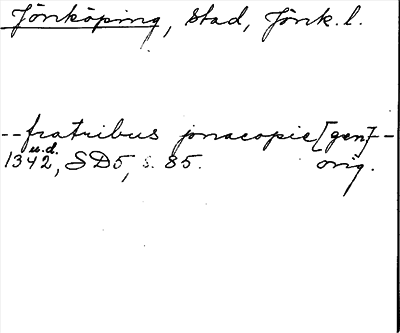 Jönköping, stad, Jönk. l.
--fratribus jonacopie [gen]--
1342 u.d., SD5, s. 85. orig.